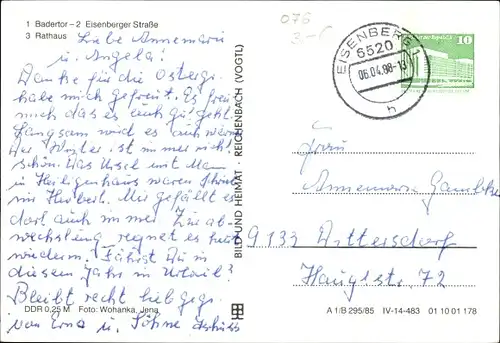 1 Badertor – 2 Eisenberger Straße
3 Rathaus
Liebe Annemarie
u. Angela!
Danke für die Ostergr.
habe mich gefreut. Es freut
mich das es euch gut geht.
Langsam wird es auch
Der Winter ist immer nicht
schön. Das Ursel mit Mann
in Heiligenhaus waren
im Herbst. Mir gefällt es
dort auch immer. Zur ab-
wechslung regnet es heut
wiederum. Fährst Du in
diesem Jahr in Urlaub?
Bleibt recht lieb gegr.
von Erna u. Söhne Tschüss
DDR 0,25 M Foto: Wohanka, Jena
BILD UND HEIMAT · REICHENBACH (VOGTL)
076
3.-
EISENBERG 1
6520
06.04.88-13
h
10
Frau
Annemarie
9133
Hauptstr. 72
A 1/B 295/85 IV-14-483 01 10 01 178